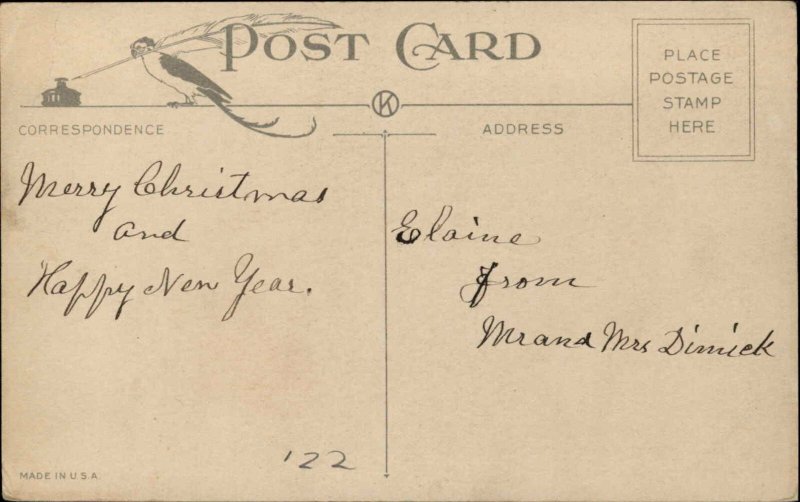 POST CARD
CORRESPONDENCE
K
ADDRESS
PLACE
POSTAGE
STAMP
HERE
Merry Christmas
and
Happy New Year.
Elaine
from
Mr and Mrs Dimick
'22
MADE IN U.S.A.